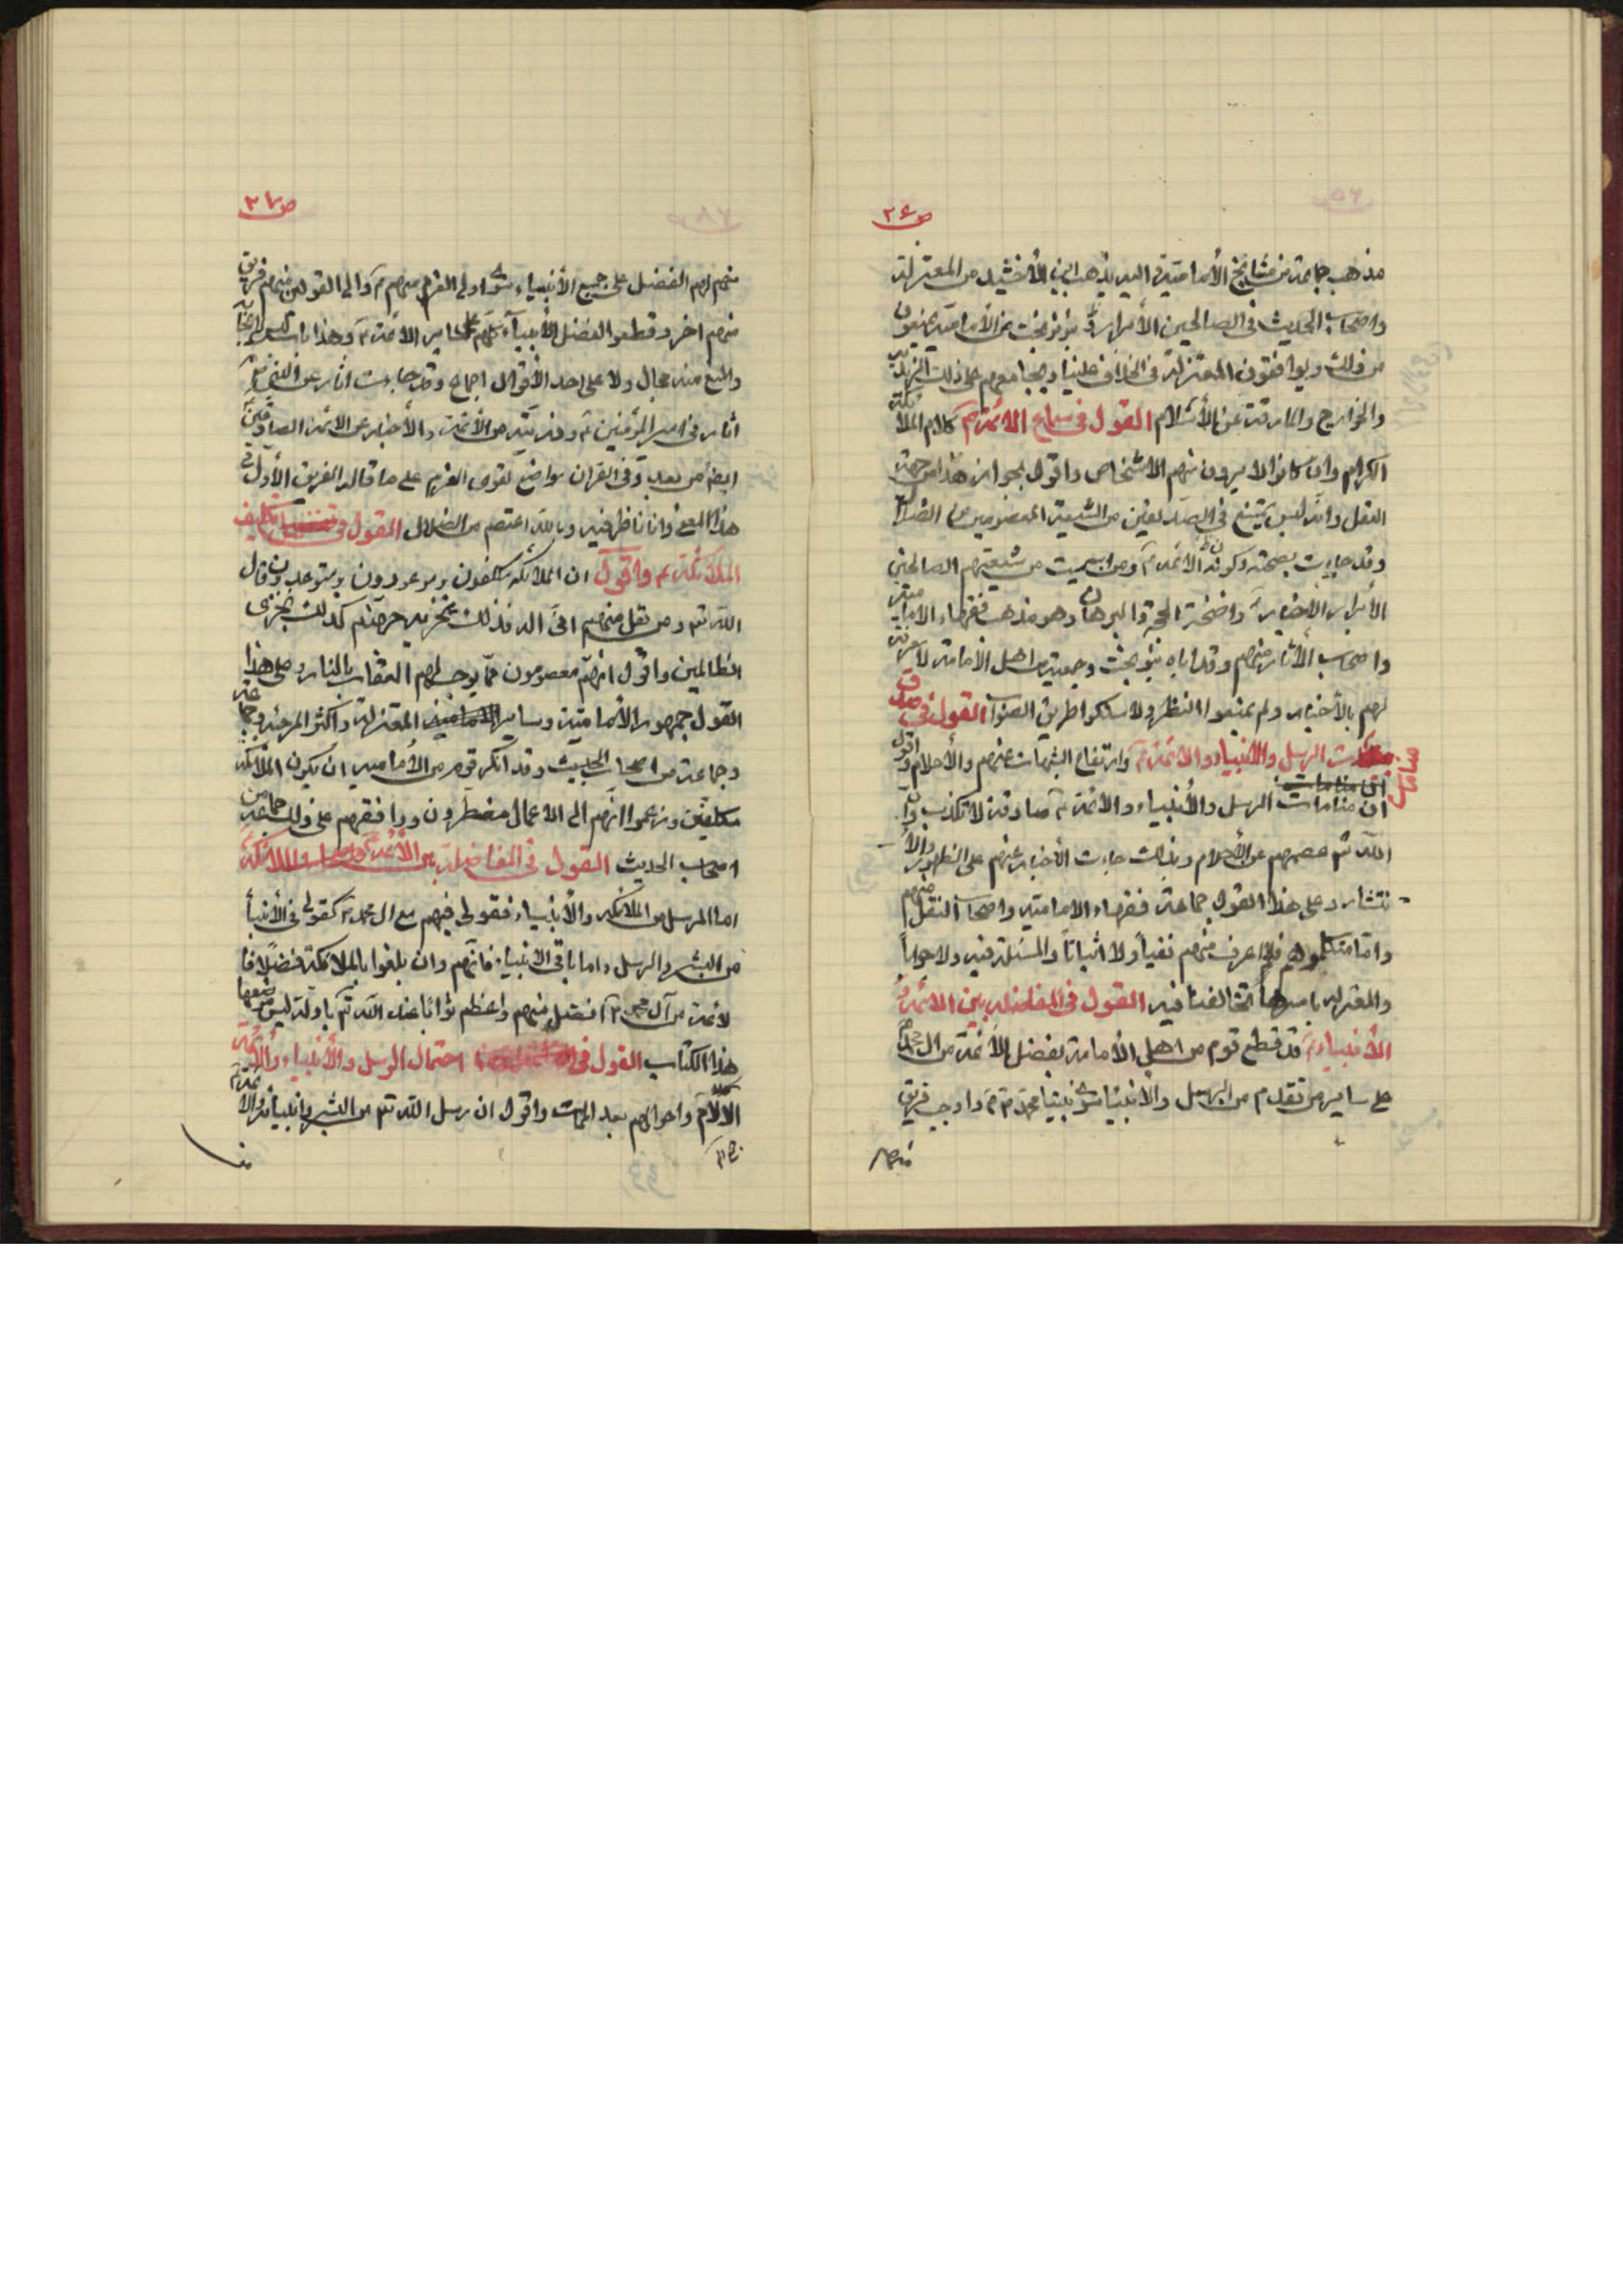 ص ٢۶
مذهب جماعة من مشايخ الأمامية و اليه يذهب ابن الأخشيد من المعتزلة
واصحاب الحديث في الصالحين الأبرار و بنو نوبخت من الأمامية يمنعون
من ذلك ويوافقون المعتزلة في الخلاف علينا ويجامعهم على ذلك الزيدية
والخوارج والمارقة عن الأسلام القول في سماع الائمة ع كلام الملائكة
الكرام وان كانوا لا يرون منهم الاشخاص واقول بجواز هذا من جهة
العقل وانه ليس بممتنع في الصديقين من الشيعة المعصومين من الضلال
وقد جاءت بصحته وكونه للائمة ع ومن اسميت من شيعتهم الصالحين
الأبرار الأخيار واضحة الحجة والبرهان وهو مذهب فقهاء الامامية
واصحاب الأثار منهم وقد اباه بنو نوبخت وجماعة من اهل الأمامة لا معرفة
لهم بالأخبار ولم يمنعوا النظر ولا سلكوا طريق الصواب القول في صدق
منامات الرسل والانبياء والائمة ع وارتفاع الشبهات عنهم والأحلام واقول
ان منامات الرسل والأنبياء والأئمة ع صادقة لا تكذب وان
الله تع عصمهم عن الأحلام وبذلك جاءت الأخبار عنهم على الظهور والأ
نتشار وعلى هذا القول جماعة فقهاء الامامية واصحاب النقل منهم
واما متكلموهم فلا اعرف منهم نفياً ولا اثباتاً والمسئلة فيه ولا جواباً
والمعتزلة باسرها تخالفنا فيه القول في المفاضلة بين الائمة و
الأنبياء ع قد قطع قوم من اهل الأمامة بفضل الأئمة من ال محمد
على ساير من تقدم من الرسل والانبياء سوى نبينا محمد ص واوجب فريق
منهم
ص ٢٧
منهم لهم الفضل على جميع الأنبياء سوى اولي العزم منهم ع وابى القولين منهم فريق
منهم اخر وقطعوا بفضل الأنبياء كلهم على ساير الائمة ع وهذا باب ليس للعقل في ايجابه
والمنع منه مجال ولا على احد الأقوال اجماع وقد جاءت اثار عن النبي ص
أثار في امير المؤمنين ع وذريته من الأئمة والأخبار عن الائمة الصادقين
ايضاً من بعد وفي القران مواضع تقوي العزم على ما قاله الفريق الأول في
هذا المعنى وانا ناظر فيه وبالله اعتصم من الضلال القول في تكليف
الملائكة ع واقول ان الملائكة مكلفون وموعودون ومتوعدون قال
الله تع ومن يقل منهم اني اله فذلك نجزيه جهنم كذلك نجزي
الظالمين واقول انهم معصومون مما يوجب لهم العقاب بالنار وعلى هذا
القول جمهور الأمامية وساير المعتزلة واكثر المرجئة وجماعة
وجماعة من اصحاب الحديث وقد انكر قوم من الأمامية ان يكون الملائكة
مكلفين وزعموا انهم الى الاعمال مضطرون ووافقهم على ذلك جماعة من
اصحاب الحديث القول في المفاضلة بين الأئمة والملائكة
اما الرسل من الملائكة والأنبياء فقولي فيهم مع ال محمد ص كقولي في الأنبياء
من البشر والرسل واما باقي الانبياء فانهم وان بلغوا بالملائكة فضلا فا
لأئمة من آل محمد ص افضل منهم واعظم ثوابا عند الله تع بادلة ليس موضعها
هذا الكتاب القول في احتمال الرسل والأنبياء والائمة
الالام واحوالهم بعد الممات واقول ان رسل الله تع من البشر وانبياءه والائمة